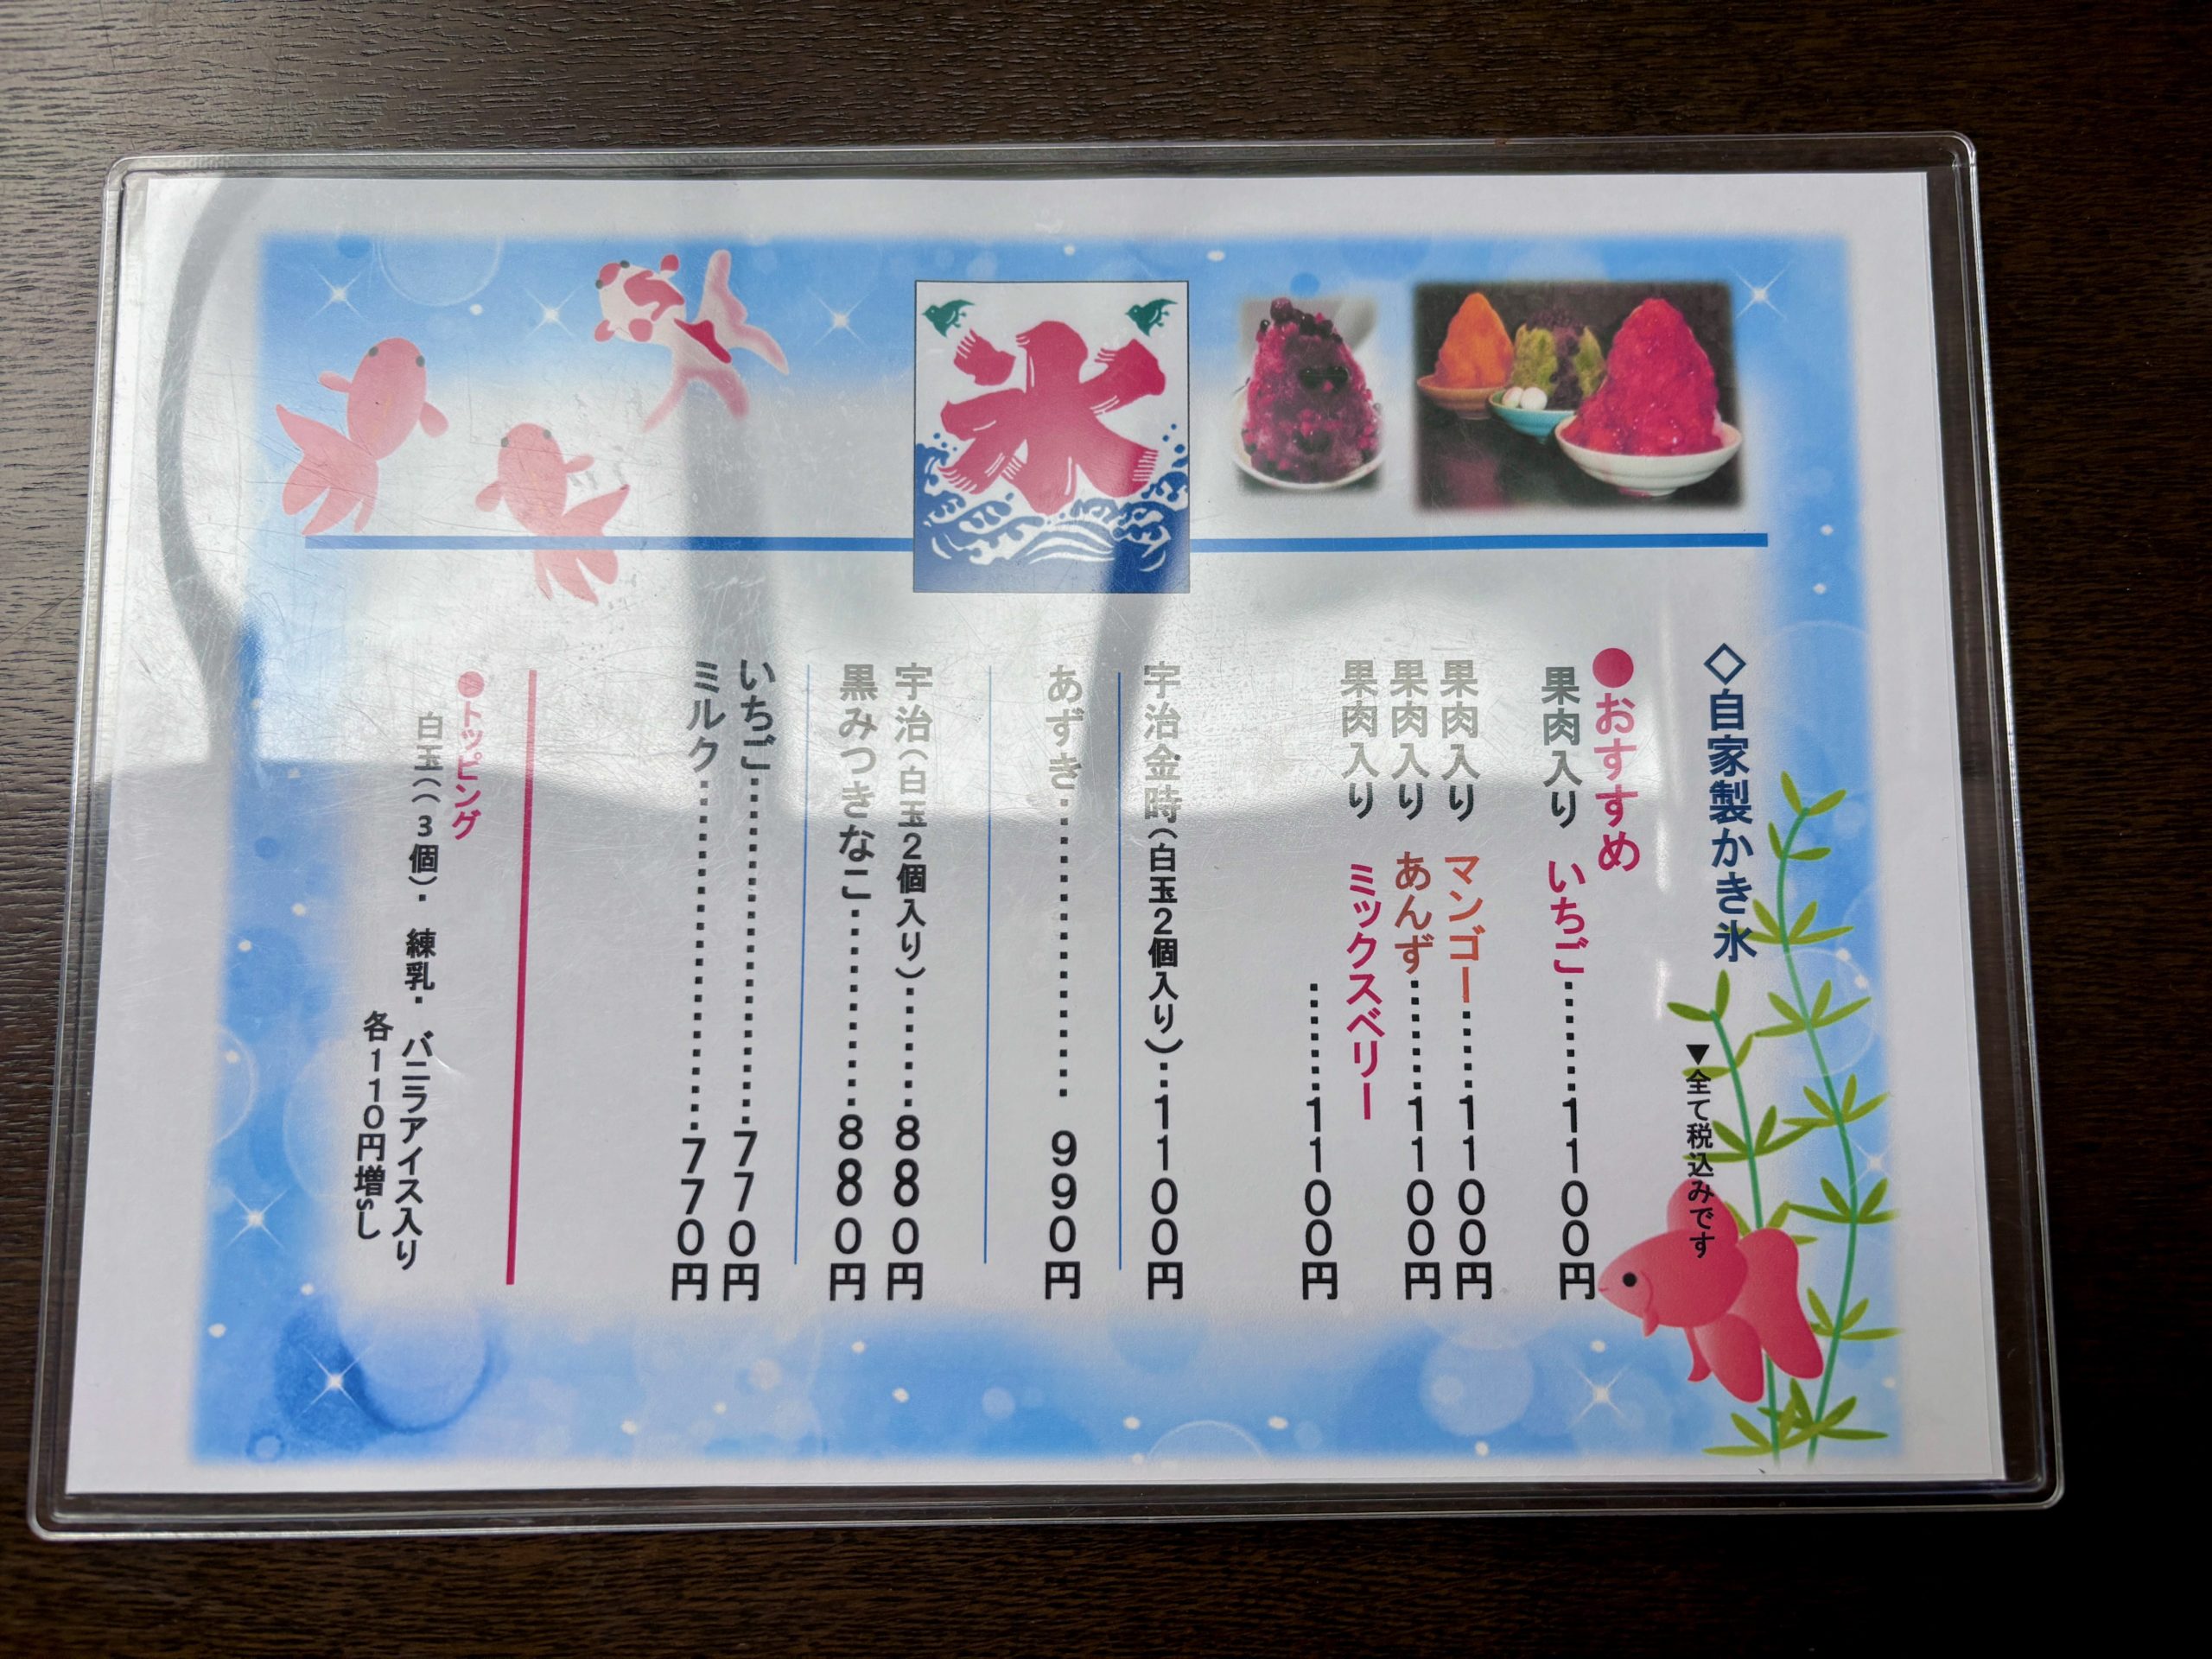 氷
◇自家製かき氷
▼全て税込みです
●おすすめ
果肉入り いちご‥‥‥1100円
果肉入り マンゴー‥‥‥1100円
果肉入り あんず‥‥‥1100円
果肉入り ミックスベリー
‥‥‥1100円
宇治金時(白玉2個入り)‥1100円
あずき‥‥‥‥‥‥‥ 990円
宇治(白玉2個入り)‥‥‥880円
黒みつきなこ‥‥‥‥‥880円
いちご‥‥‥‥‥‥‥‥770円
ミルク‥‥‥‥‥‥‥‥770円
●トッピング
白玉((3個)・ 練乳・ バニラアイス入り
各110円増sし